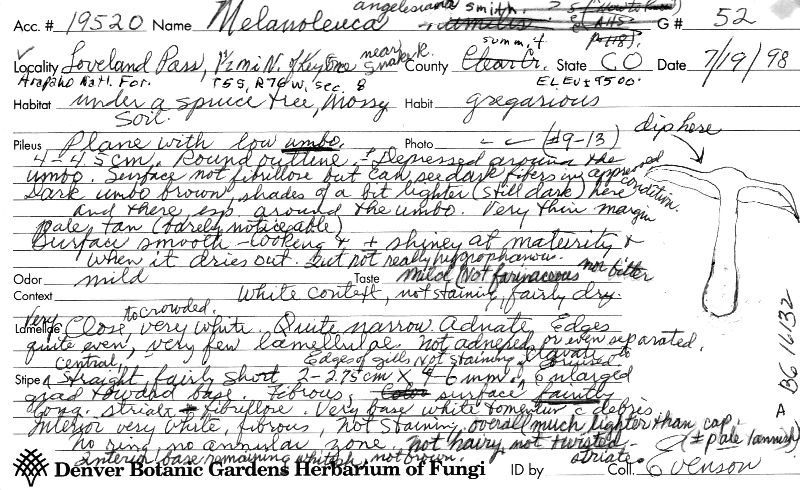 angelesiana smith.
Acc. # 19520 Name Melanoleuca G# 52
Locality Loveland Pass, 1½ mi N. of Keystone near Snake R. County Summit Clear Cr. State CO Date 7/19/98
Arapaho Natl. For. T5S, R76W, Sec. 8 ELEV ± 9500.
Habitat under a spruce tree, Mossy Soil. Habit gregarious
Pileus Plane with low umbo. Photo (#9-13) dip here
4-4.5cm. Round outline, ± Depressed around the
umbo. Surface not fibrillose but can see dark fibers in appressed condition.
Dark umbo brown, shades of a bit lighter (still dark) here
and there, esp. around the umbo. Very thin margin
paley tan (barely noticeable)
Surface smooth-looking & + shiney at maturity &
when it dries out. but not really hygrophanous.
Odor mild Taste Mild (Not farinaceous not bitter
Context White context, not staining, fairly dry.
Lamellae Very Close, to crowded. very white. Quite narrow Adnate, Edges
quite even, very few lamellulae not adnexed or even separated.
Edges of gills Not staining
Stipe Central, Straight fairly short 2-2.75cm X 4-6mm. Enlarged
grad toward base. Fibrous, surface fairly
long. striate fibrillose. Very base white tomentum c debris.
Interior very white, fibrous, Not staining. overall much lighter than cap.
no ring, no annular zone. Not hairy, not twisted- striate. (± pale tannish)
interior base remaining whitish, not brown.
Denver Botanic Gardens Herbarium of Fungi ID by Coll. Evenson
A BG 16132